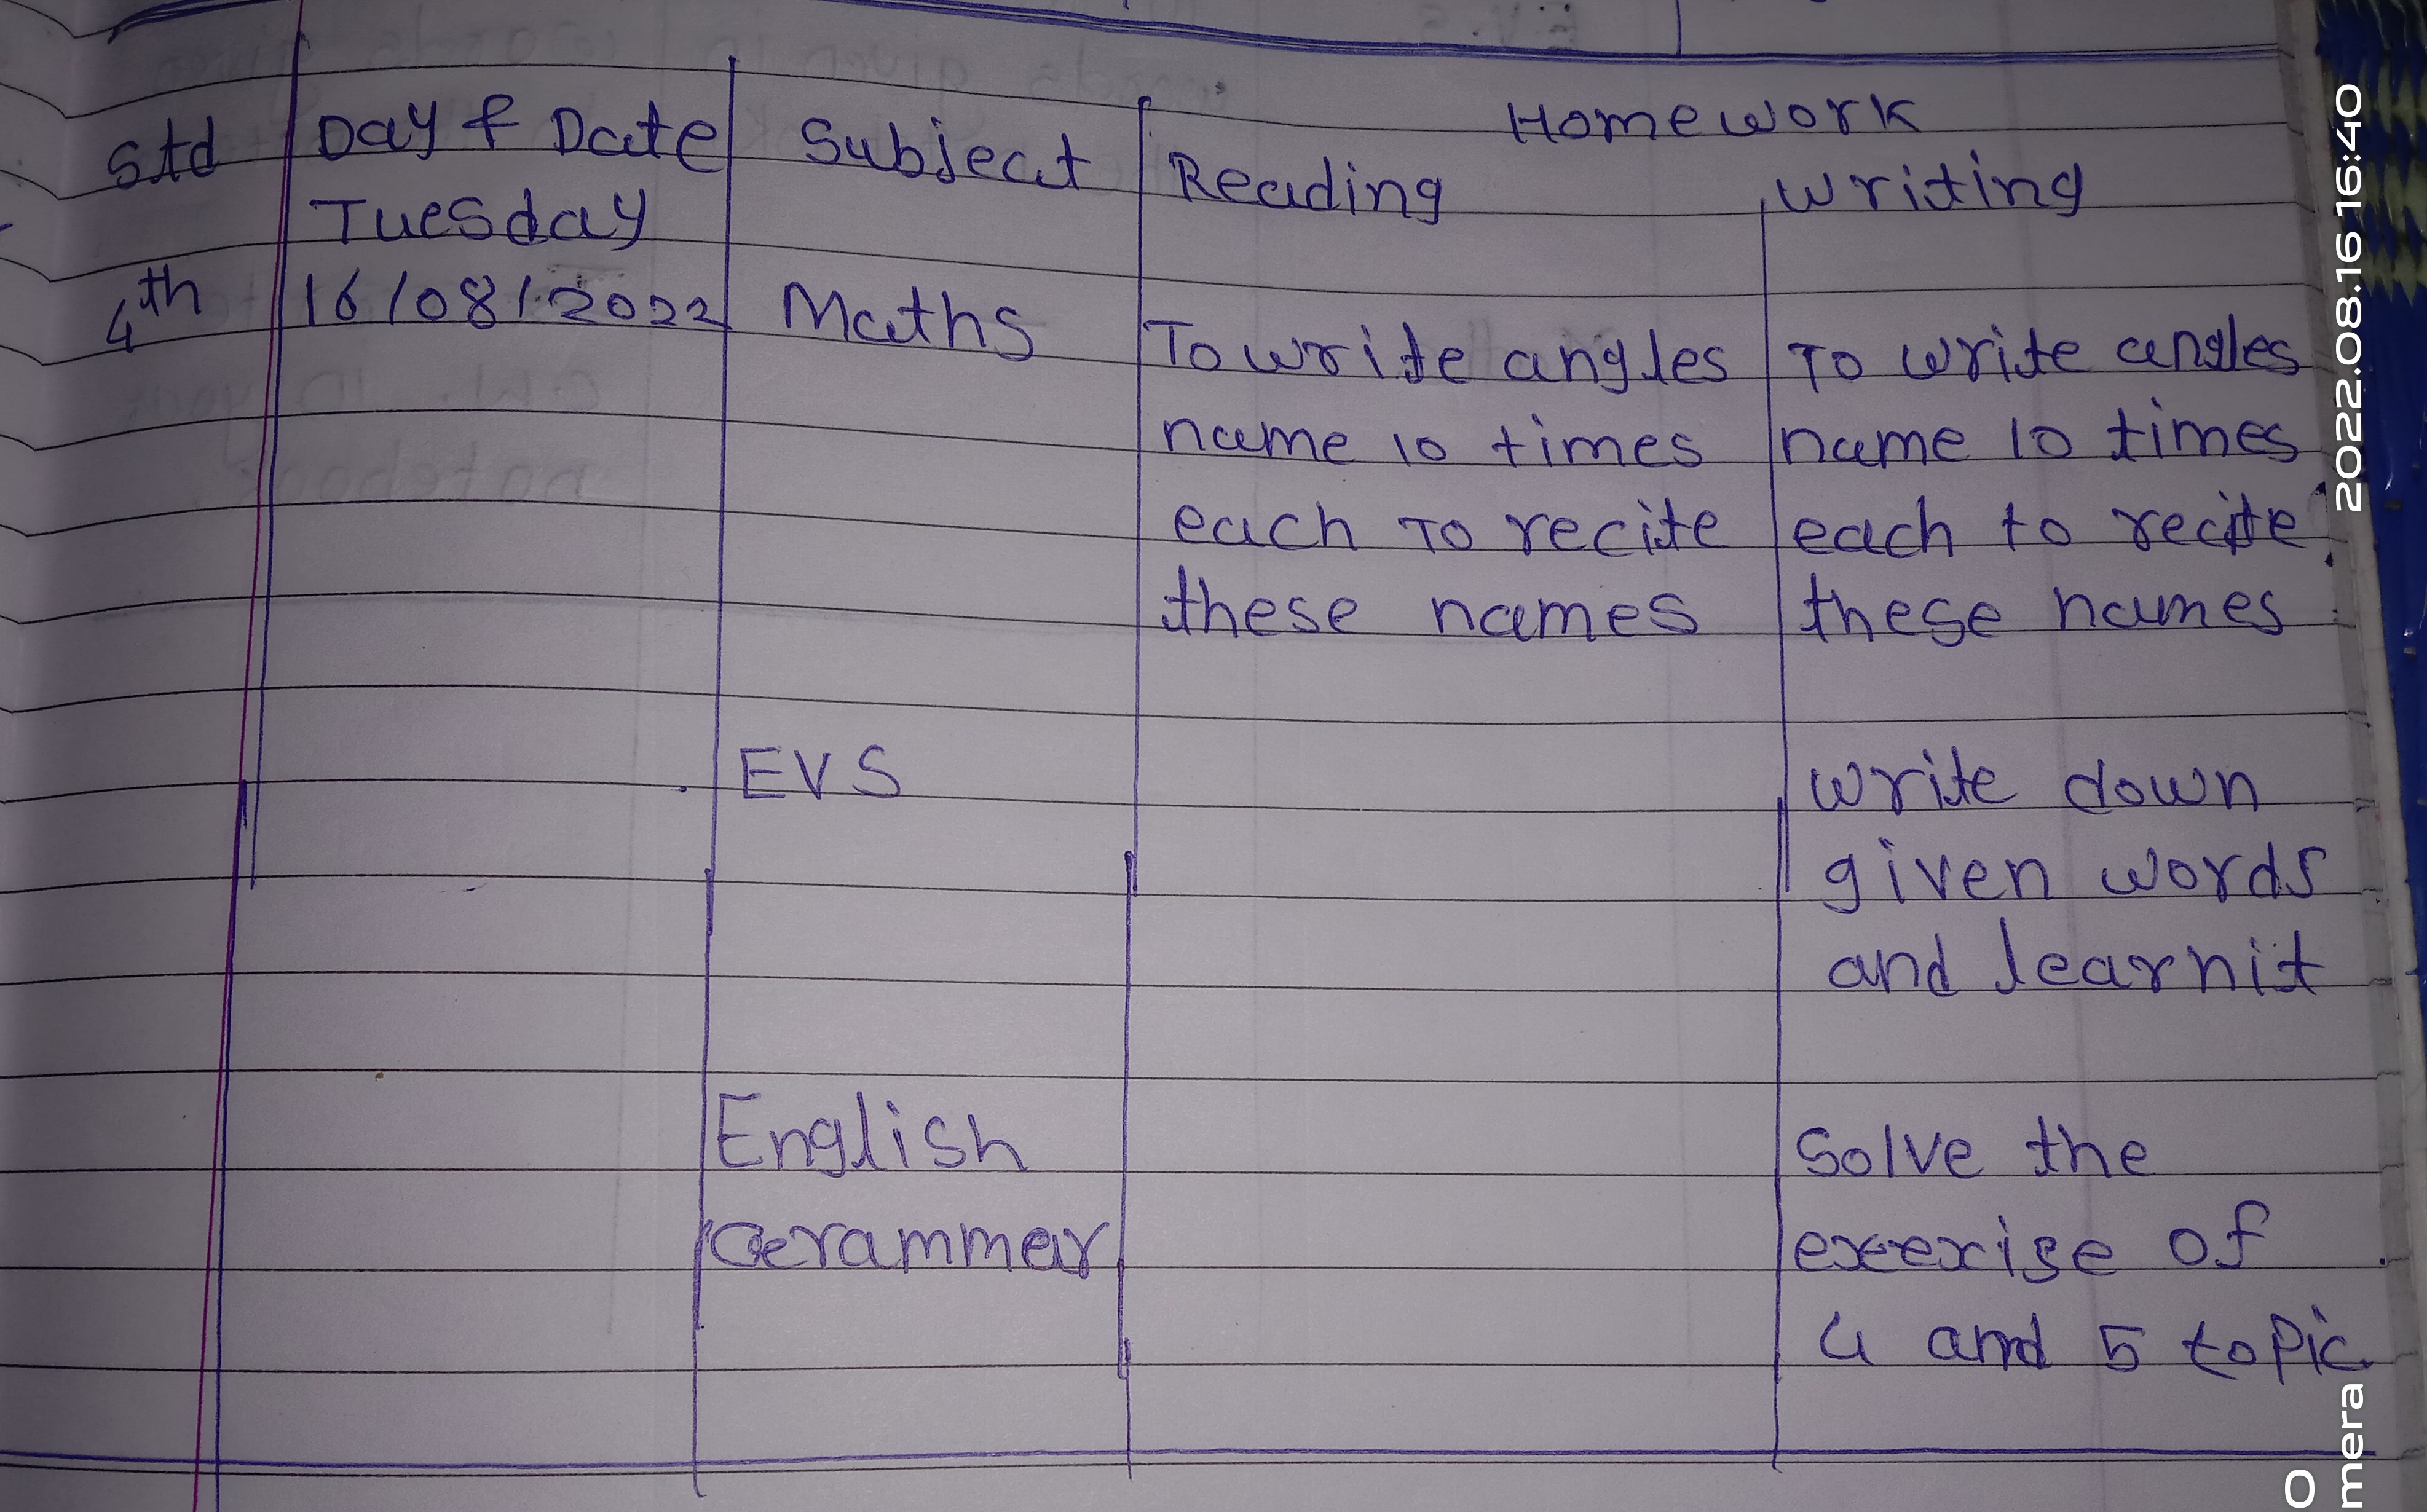 Homework
Std Day & Date Subject Reading Writing
Tuesday
4th 16/08/2022 Maths To write angles To write angles
name 10 times name 10 times
each To recite each to recite
these names these names
EVS Write down
given words
and learnit
English Solve the
Grammar exexise of
4 and 5 topic
2022.08.16 16:40